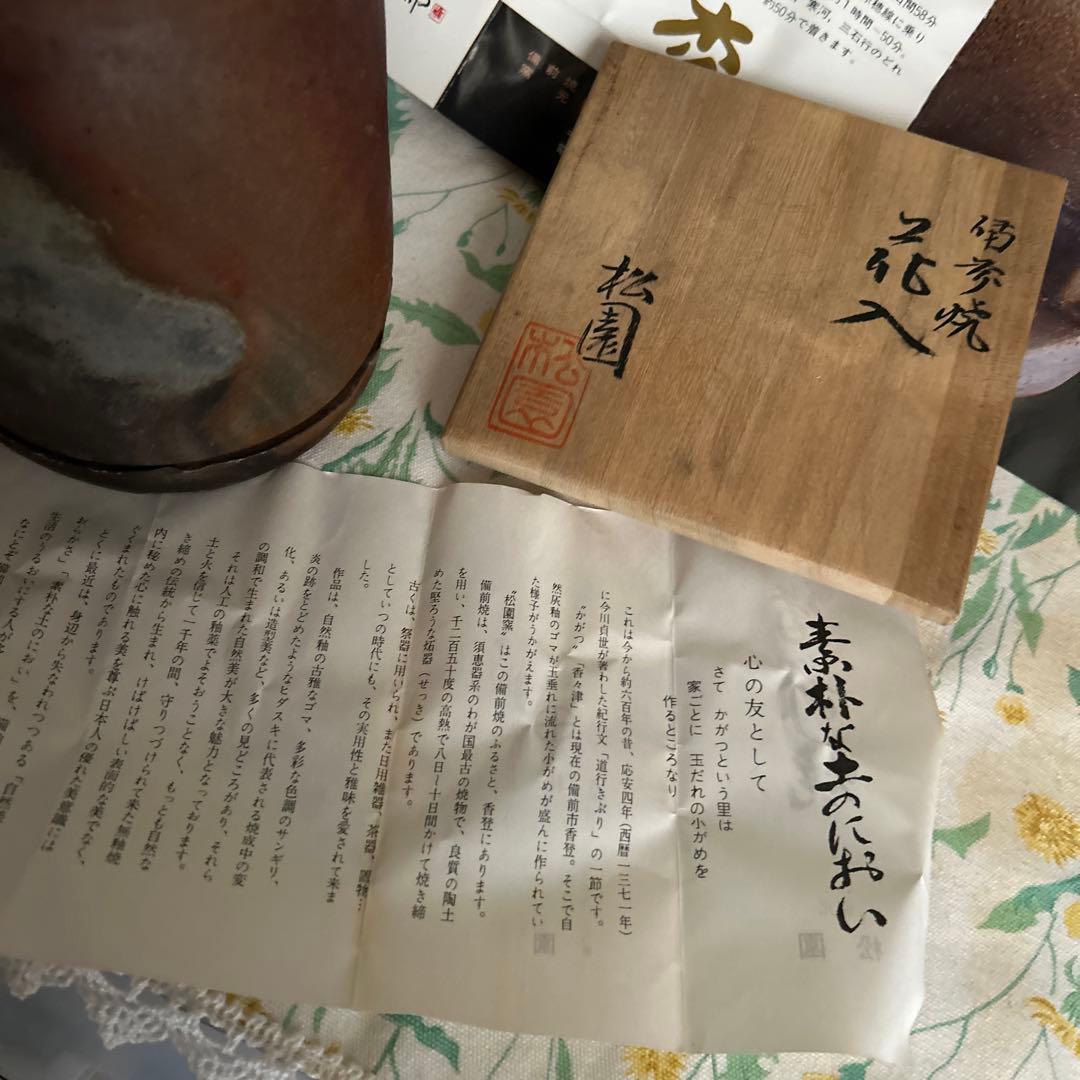 間58分
穂線に乗り
1時間〜50分。
寒河，三石行のどれ
約50分で着きます。
備前焼
花入
松園
松園
素朴な土のにおい
心の友として
さて　かがつという里は
家ごとに　玉だれの小がめを
作るところなり
これは今から約六百年の昔、応安四年（西暦一三七一年）
に今川貞世が著わした紀行文「道行きぶり」の一節です。
“かがつ”「香々津」とは現在の備前市香登。そこで自
然灰釉のゴマが玉垂れに流れた小がめが盛んに作られてい
た様子がうかがえます。
“松園窯”はこの備前焼のふるさと、香登にあります。
備前焼は、須恵器系のわが国最古の焼物で、良質の陶土
を用い、千二百五十度の高熱で八日―十日間かけて焼き締
めた堅ろうな炻器（せっき）であります。
古くは、祭器に用いられ、また日用雑器、茶器、置物…
としていつの時代にも、その実用性と雅味を愛されて来ま
した。
作品は、自然釉の古雅なゴマ、多彩な色調のサンギリ、
炎の跡をとどめたようなヒダスキに代表される焼成中の変
化、あるいは造型美など、多くの見どころがあり、それら
の調和で生まれた自然美が大きな魅力となっております。
それは人工の釉薬でよそおうことなく、もっとも自然な
土と火を信じて一千年の間、守りつづけられて来た無釉焼
き締めの伝統から生まれ、けばけばしい表面的な美でなく、
内に秘めた心に触れる美を尊ぶ日本人の優れた美意識には
ぐくまれたものであります。
とくに最近は、身辺から失なわれつつある「自然美
おらかさ」「素朴な土のにおい」を、備前
生活のうるおいにする人が多
なにとぞ備前